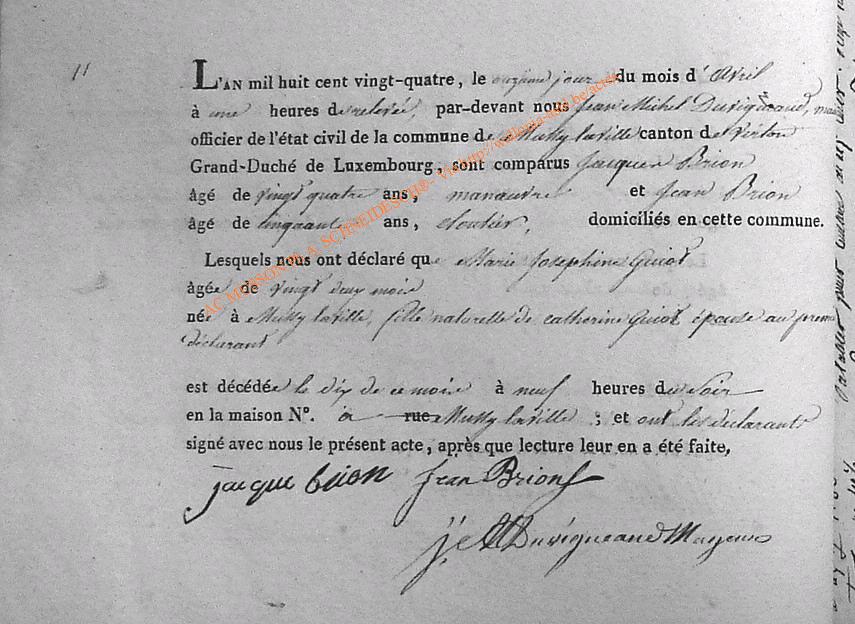 11
L'AN mil huit cent vingt-quatre, le onzieme jour du mois d'Avril
à une heures de relevée, par-devant nous Jean Michel Duvigneaud,
officier de l'état civil de la commune de Mussy laville canton de Virton
Grand-Duché de Luxembourg, sont comparus Jacques Brion
âgé de vingt quatre ans, manoeuvre et Jean Brion
âgé de cinquante ans, cloutier, domiciliés en cette commune.
Lesquels nous ont déclaré que Marie Josephine Guiot
âgée de vingt deux mois
née à Mussy laville, fille naturelle de catherine Guiot épouse au
déclarant
est décédée le dix de ce mois à neuf heures du Soir
en la maison N°. à rue Mussy laville ; et ont les déclarants
signé avec nous le présent acte, après que lecture leur en a été faite,
jacque brion Jean Brion
j. M Duvigneaud
AC MUSSON PL A. SCHNEIDESCH® - Via http://wallonia-asbl.be/actes